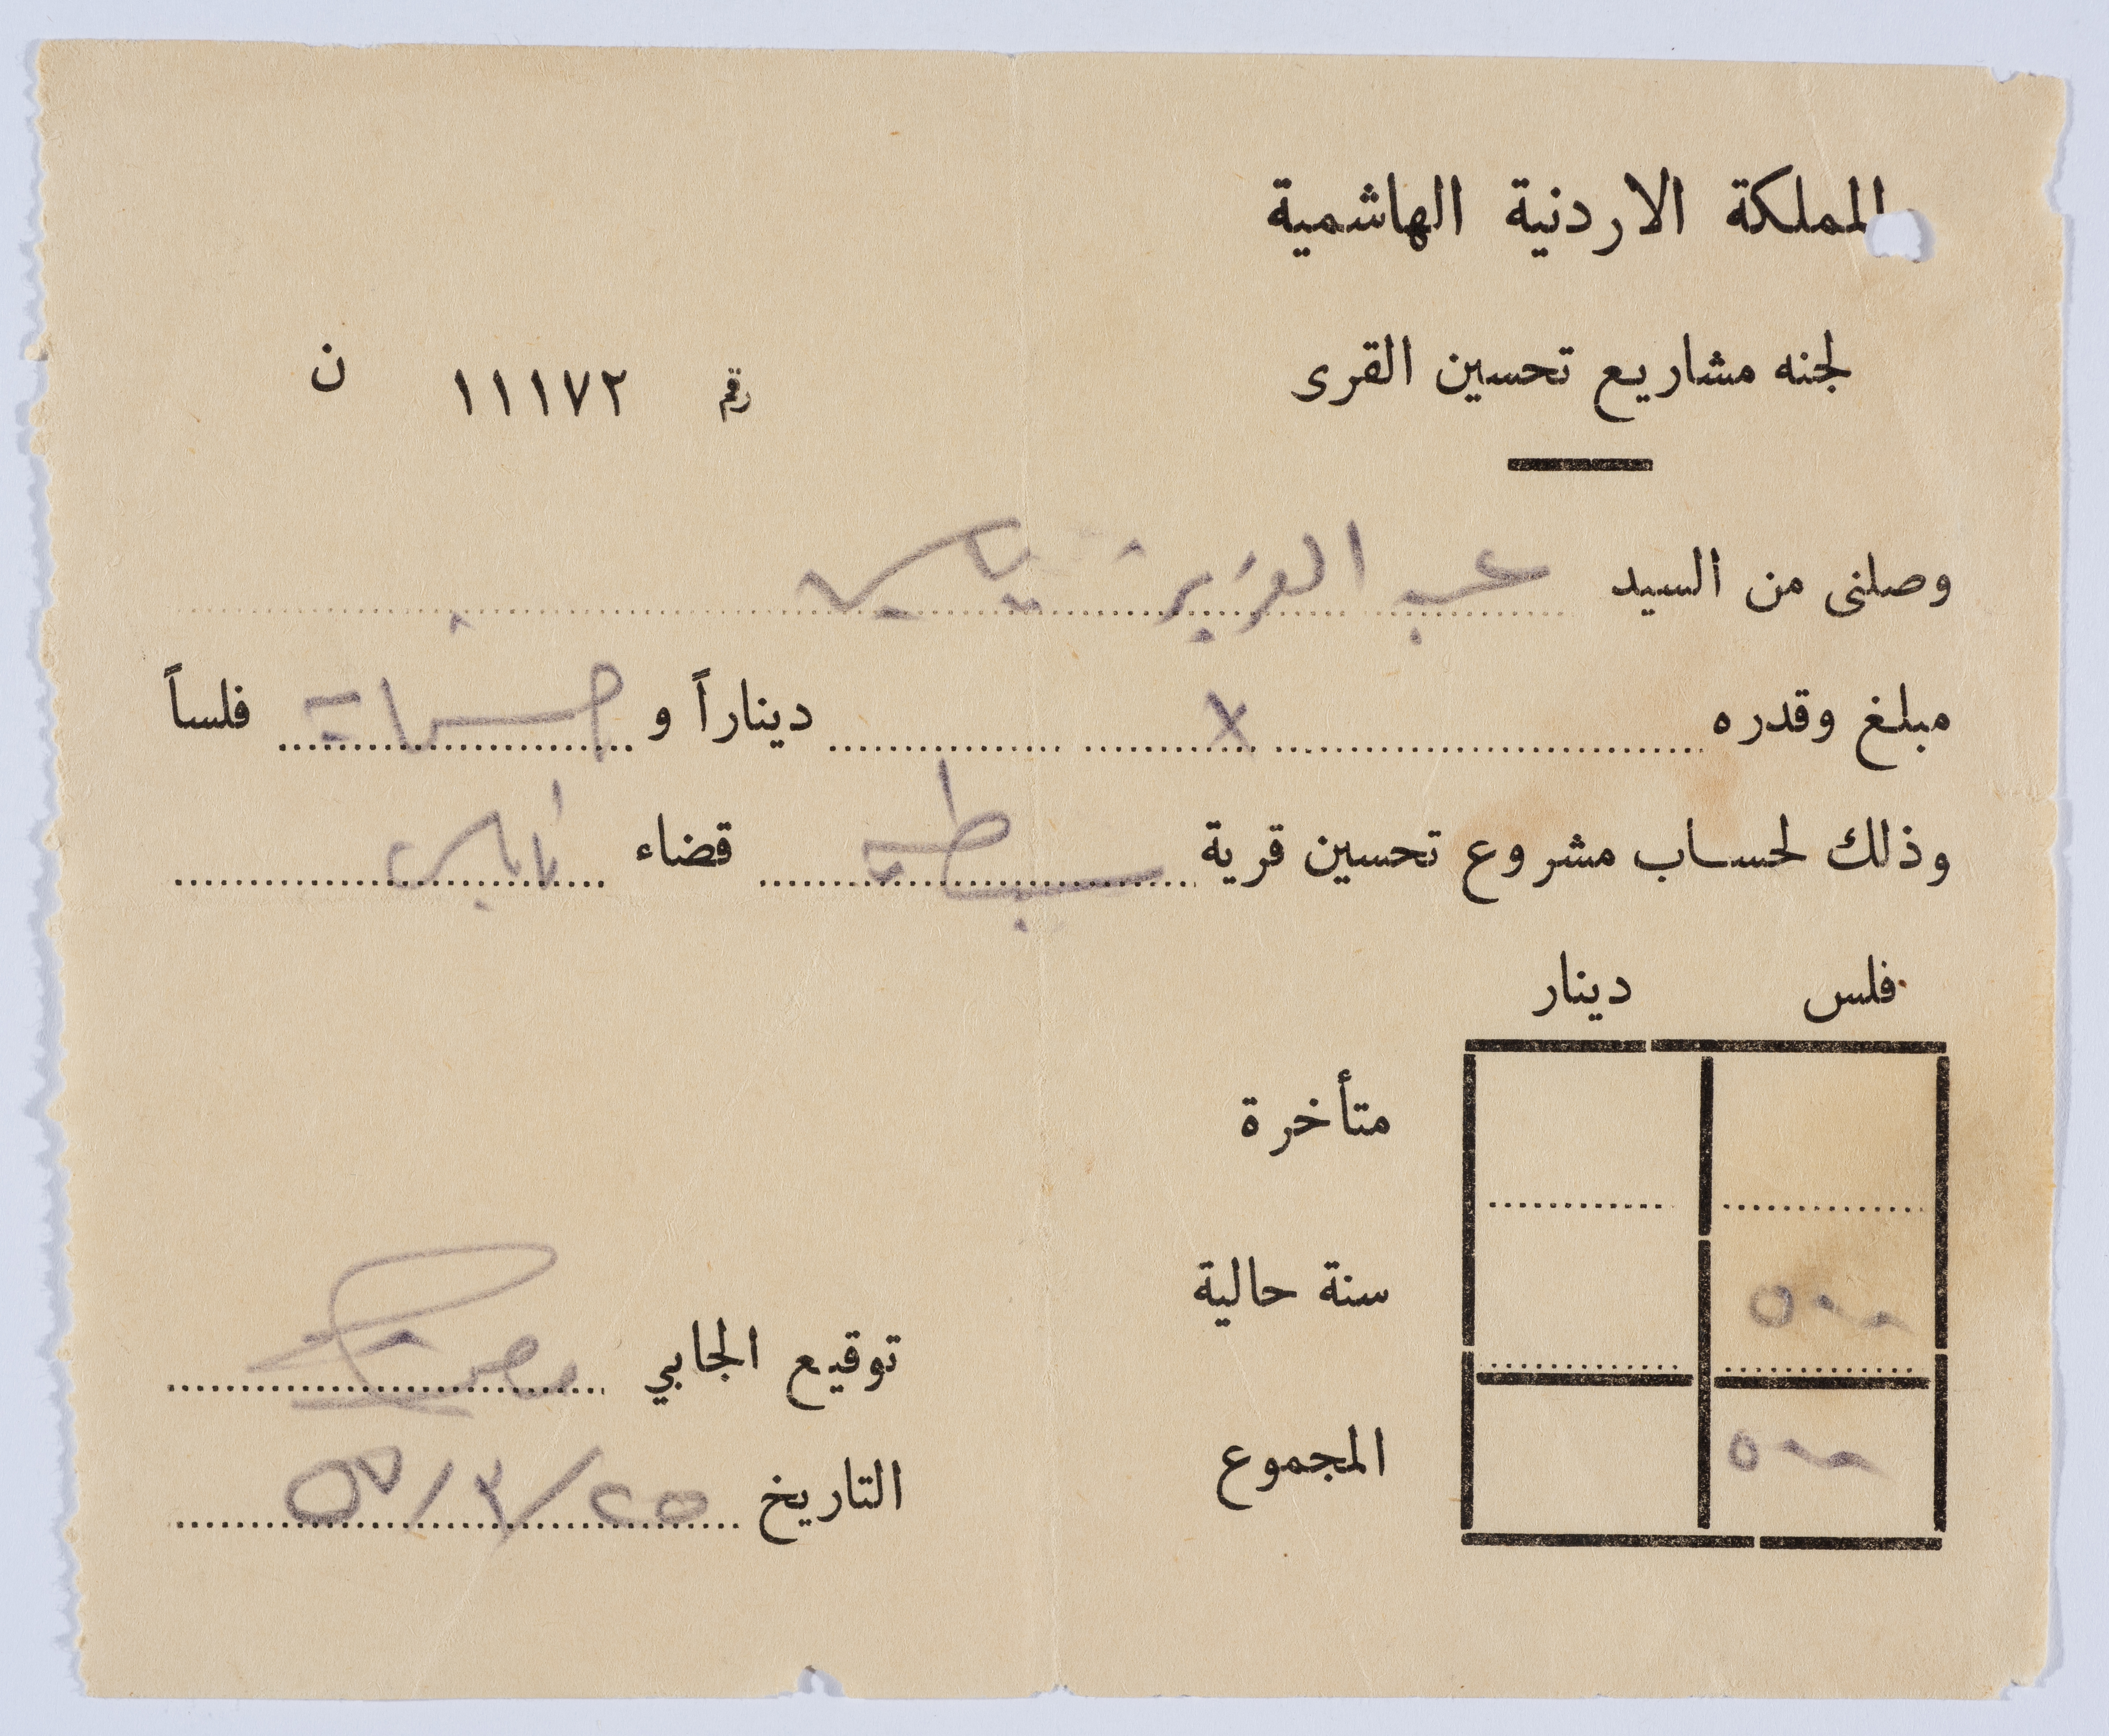 المملكة الاردنية الهاشمية
لجنه مشاريع تحسين القرى
رقم ١١١٧٢ ن
وصلنى من السيد عبد العزيز ياسين
مبلغ وقدره x ديناراً و خمسماية فلساً
وذلك لحساب مشروع تحسين قرية سبسطية قضاء نابلس
فلس دينار
متأخرة
٥٠٠ سنة حالية
٥٠٠ المجموع
توقيع الجابي
التاريخ ٢٥/٣/٥٧